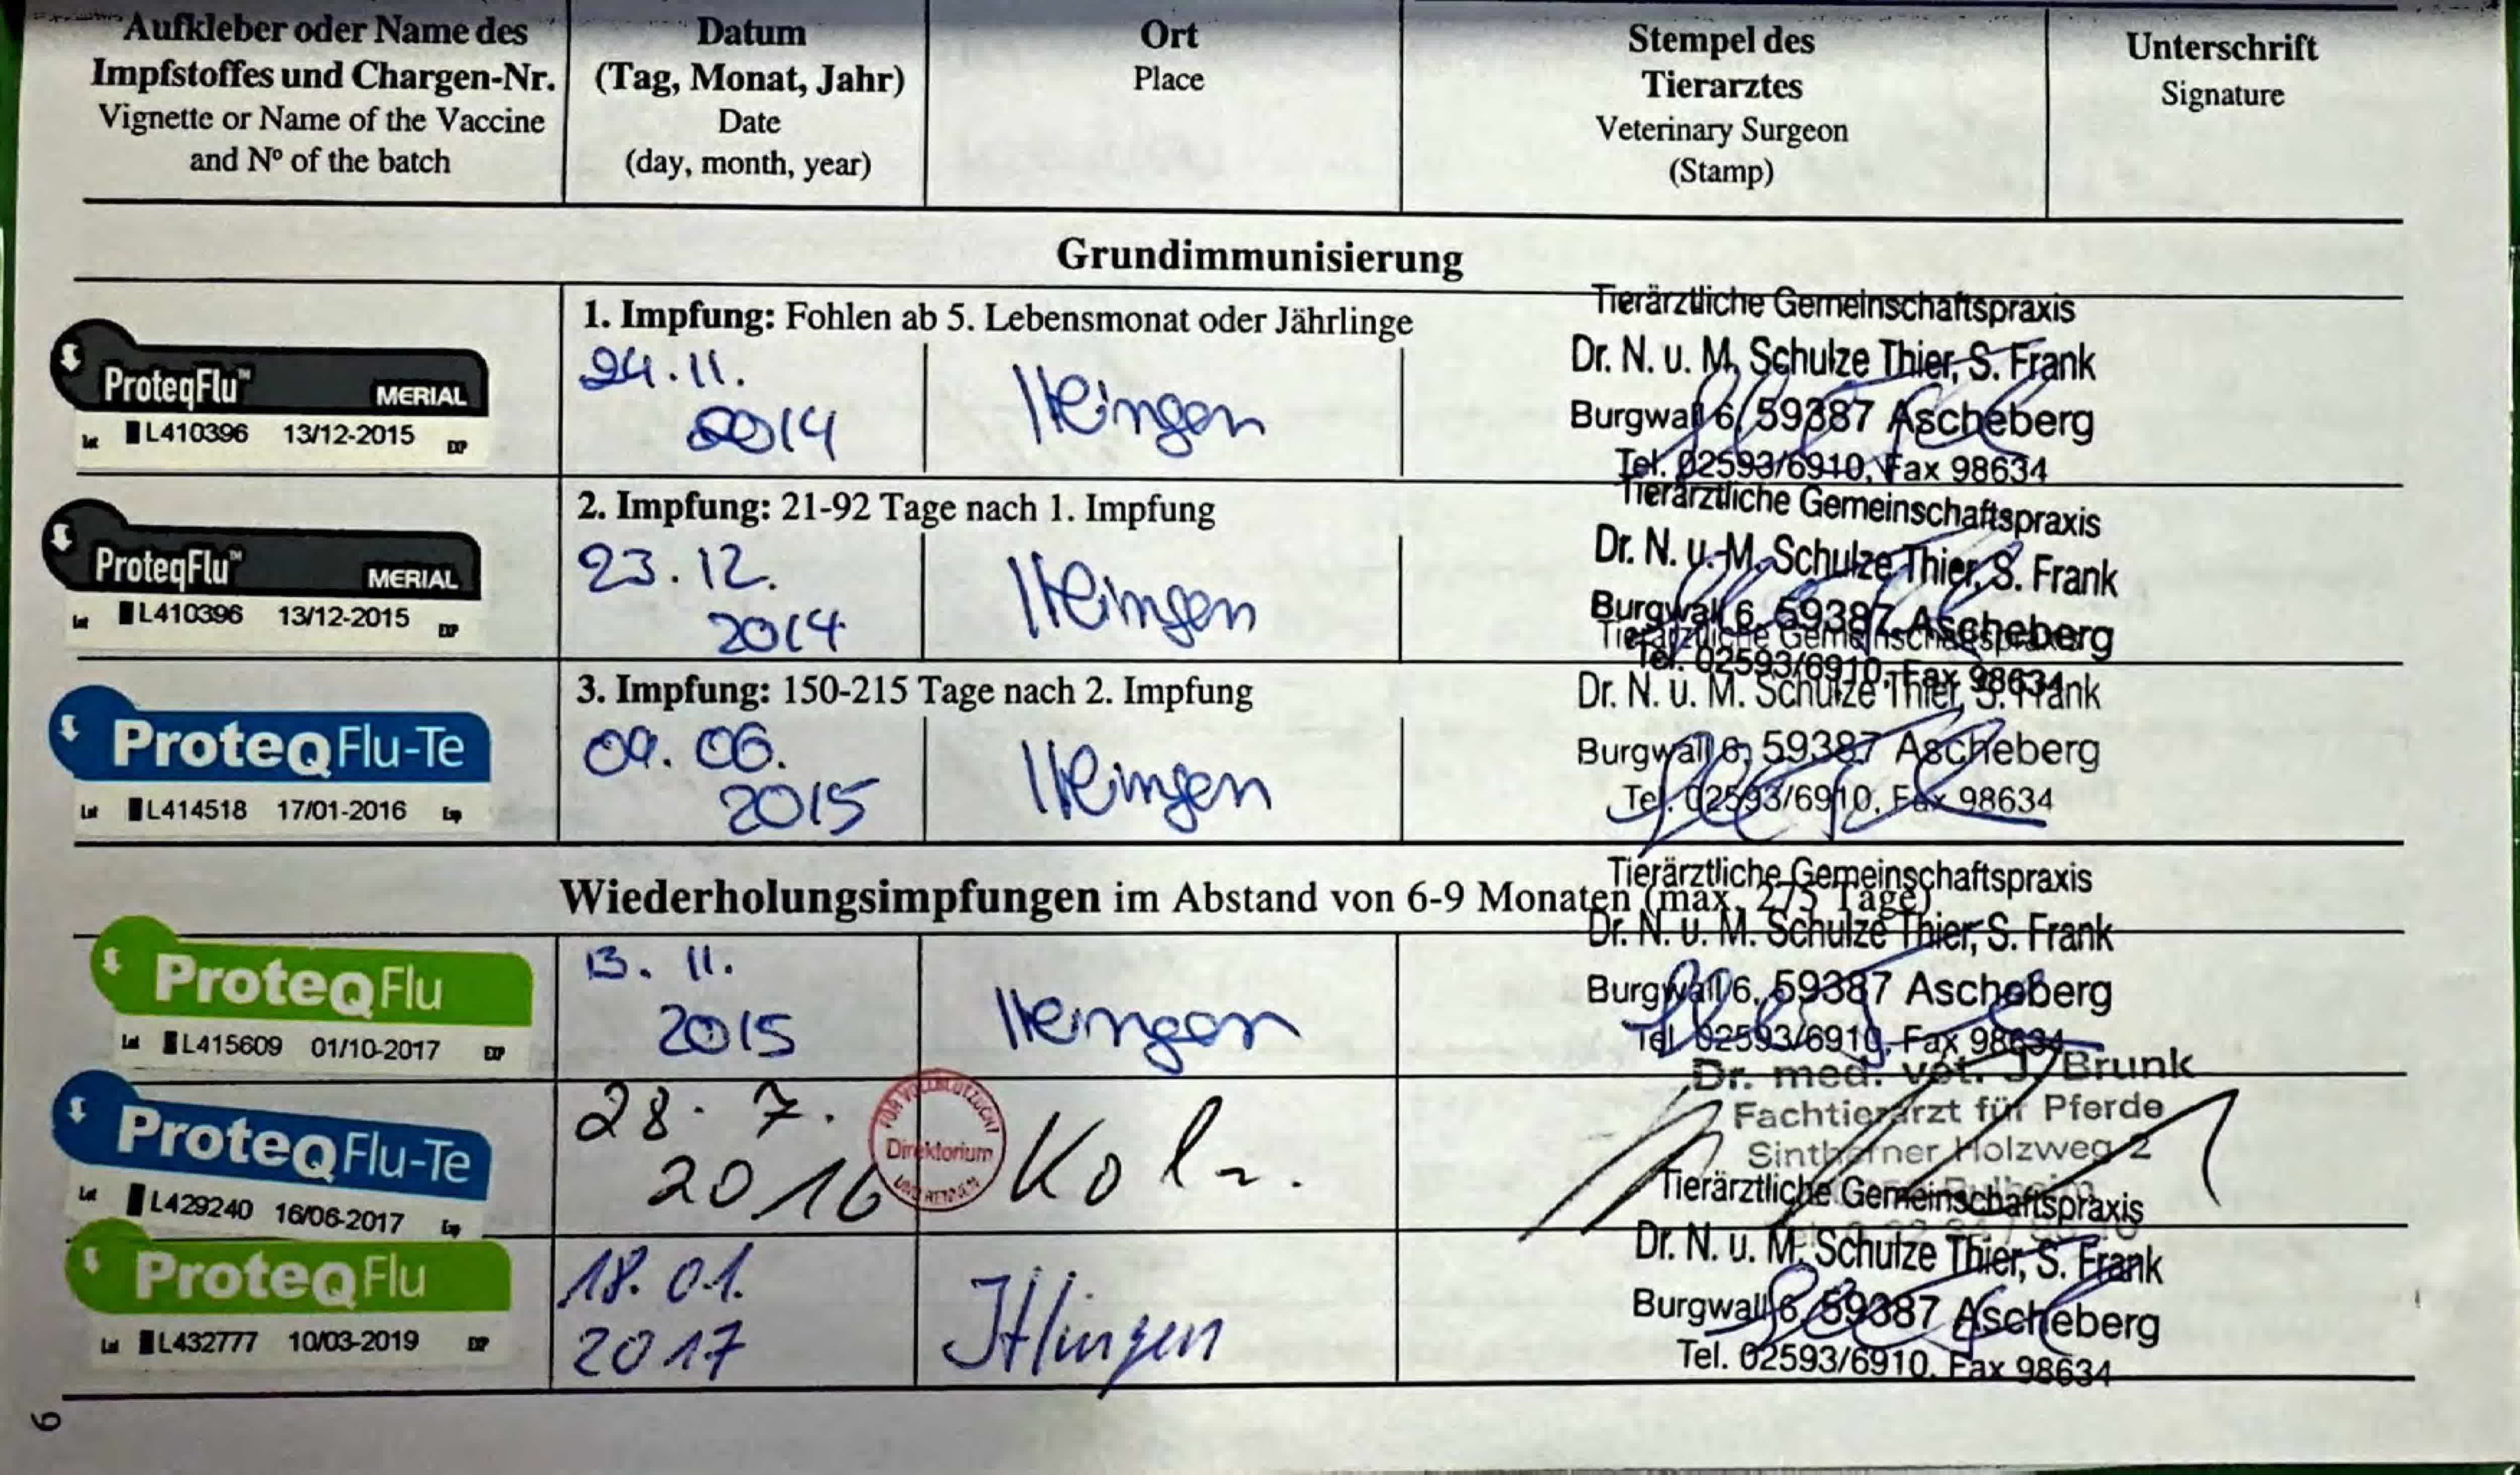 Aufkleber oder Name des
Impfstoffes und Chargen-Nr.
Vignette or Name of the Vaccine
and Nº of the batch
Datum
(Tag, Monat, Jahr)
Date
(day, month, year)
Ort
Place
Stempel des
Tierarztes
Veterinary Surgeon
(Stamp)
Unterschrift
Signature
Grundimmunisierung
1. Impfung: Fohlen ab 5. Lebensmonat oder Jährlinge
ProteqFlu™ MERIAL
Lot L410396 13/12-2015 EXP
24.11.
2014
Tierärztliche Gemeinschaftspraxis
Dr. N. u. M. Schulze Thier, S. Frank
Burgwall 6, 59387 Ascheberg
Tel. 02593/6910, Fax 98634
2. Impfung: 21-92 Tage nach 1. Impfung
ProteqFlu™ MERIAL
Lot L410396 13/12-2015 EXP
23.12.
2014
Tierärztliche Gemeinschaftspraxis
Dr. N. u. M. Schulze Thier, S. Frank
Burgwall 6, 59387 Ascheberg
Tel. 02593/6910, Fax 98634
3. Impfung: 150-215 Tage nach 2. Impfung
ProteqFlu-Te
Lot L414518 17/01-2016 Exp
09.06.
2015
Tierärztliche Gemeinschaftspraxis
Dr. N. u. M. Schulze Thier, S. Frank
Burgwall 6, 59387 Ascheberg
Tel. 02593/6910, Fax 98634
Wiederholungsimpfungen im Abstand von 6-9 Monaten (max. 275 Tage)
ProteqFlu
Lot L415609 01/10-2017 EXP
13.11.
2015
Tierärztliche Gemeinschaftspraxis
Dr. N. u. M. Schulze Thier, S. Frank
Burgwall 6, 59387 Ascheberg
Tel. 02593/6910, Fax 98634
ProteqFlu-Te
Lot L429240 16/06-2017 Exp
28.7.
2016
FÜR VOLLBLUTZUCHT
Direktorium
UND RENNEN
Köln.
Dr. med. vet. J. Brunk
Fachtierarzt für Pferde
Sintherner Holzweg 2
ProteqFlu
Lot L432777 10/03-2019 EXP
18.01.
2017
Ittlingen
Tierärztliche Gemeinschaftspraxis
Dr. N. u. M. Schulze Thier, S. Frank
Burgwall 6, 59387 Ascheberg
Tel. 02593/6910, Fax 98634
6